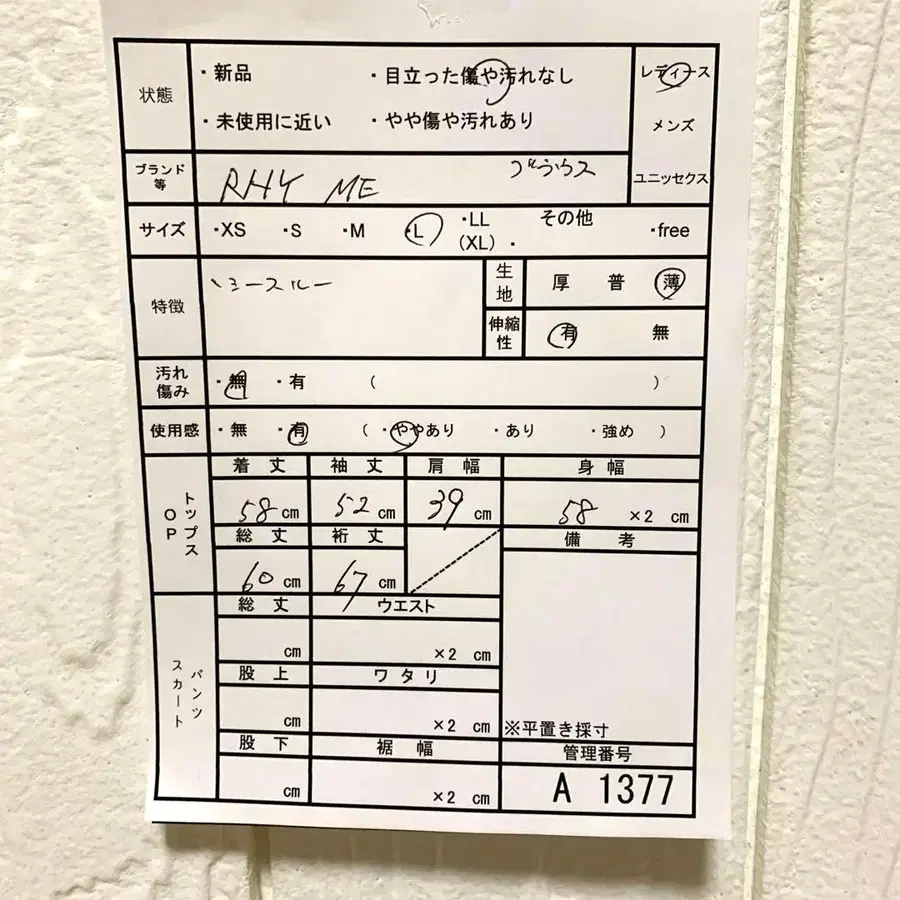 状態 ・新品 ・目立った傷や汚れなし レディース
・未使用に近い ・やや傷や汚れあり メンズ
ブランド等 RHY ME ブラウス ユニッセクス
サイズ ・XS ・S ・M ・L ・LL(XL) ・その他 ・free
特徴 シースルー 生地 厚 普 薄
伸縮性 有 無
汚れ傷み ・無 ・有 ( )
使用感 ・無 ・有 ( ・ややあり ・あり ・強め )
トップス OP 着丈 袖丈 肩幅 身幅
58 cm 52 cm 39 cm 58 ×2 cm
総丈 裄丈 備考
60 cm 67 cm
パンツ スカート 総丈 ウエスト
cm ×2 cm
股上 ワタリ
cm ×2 cm ※平置き採寸
股下 裾幅 管理番号
cm ×2 cm A 1377